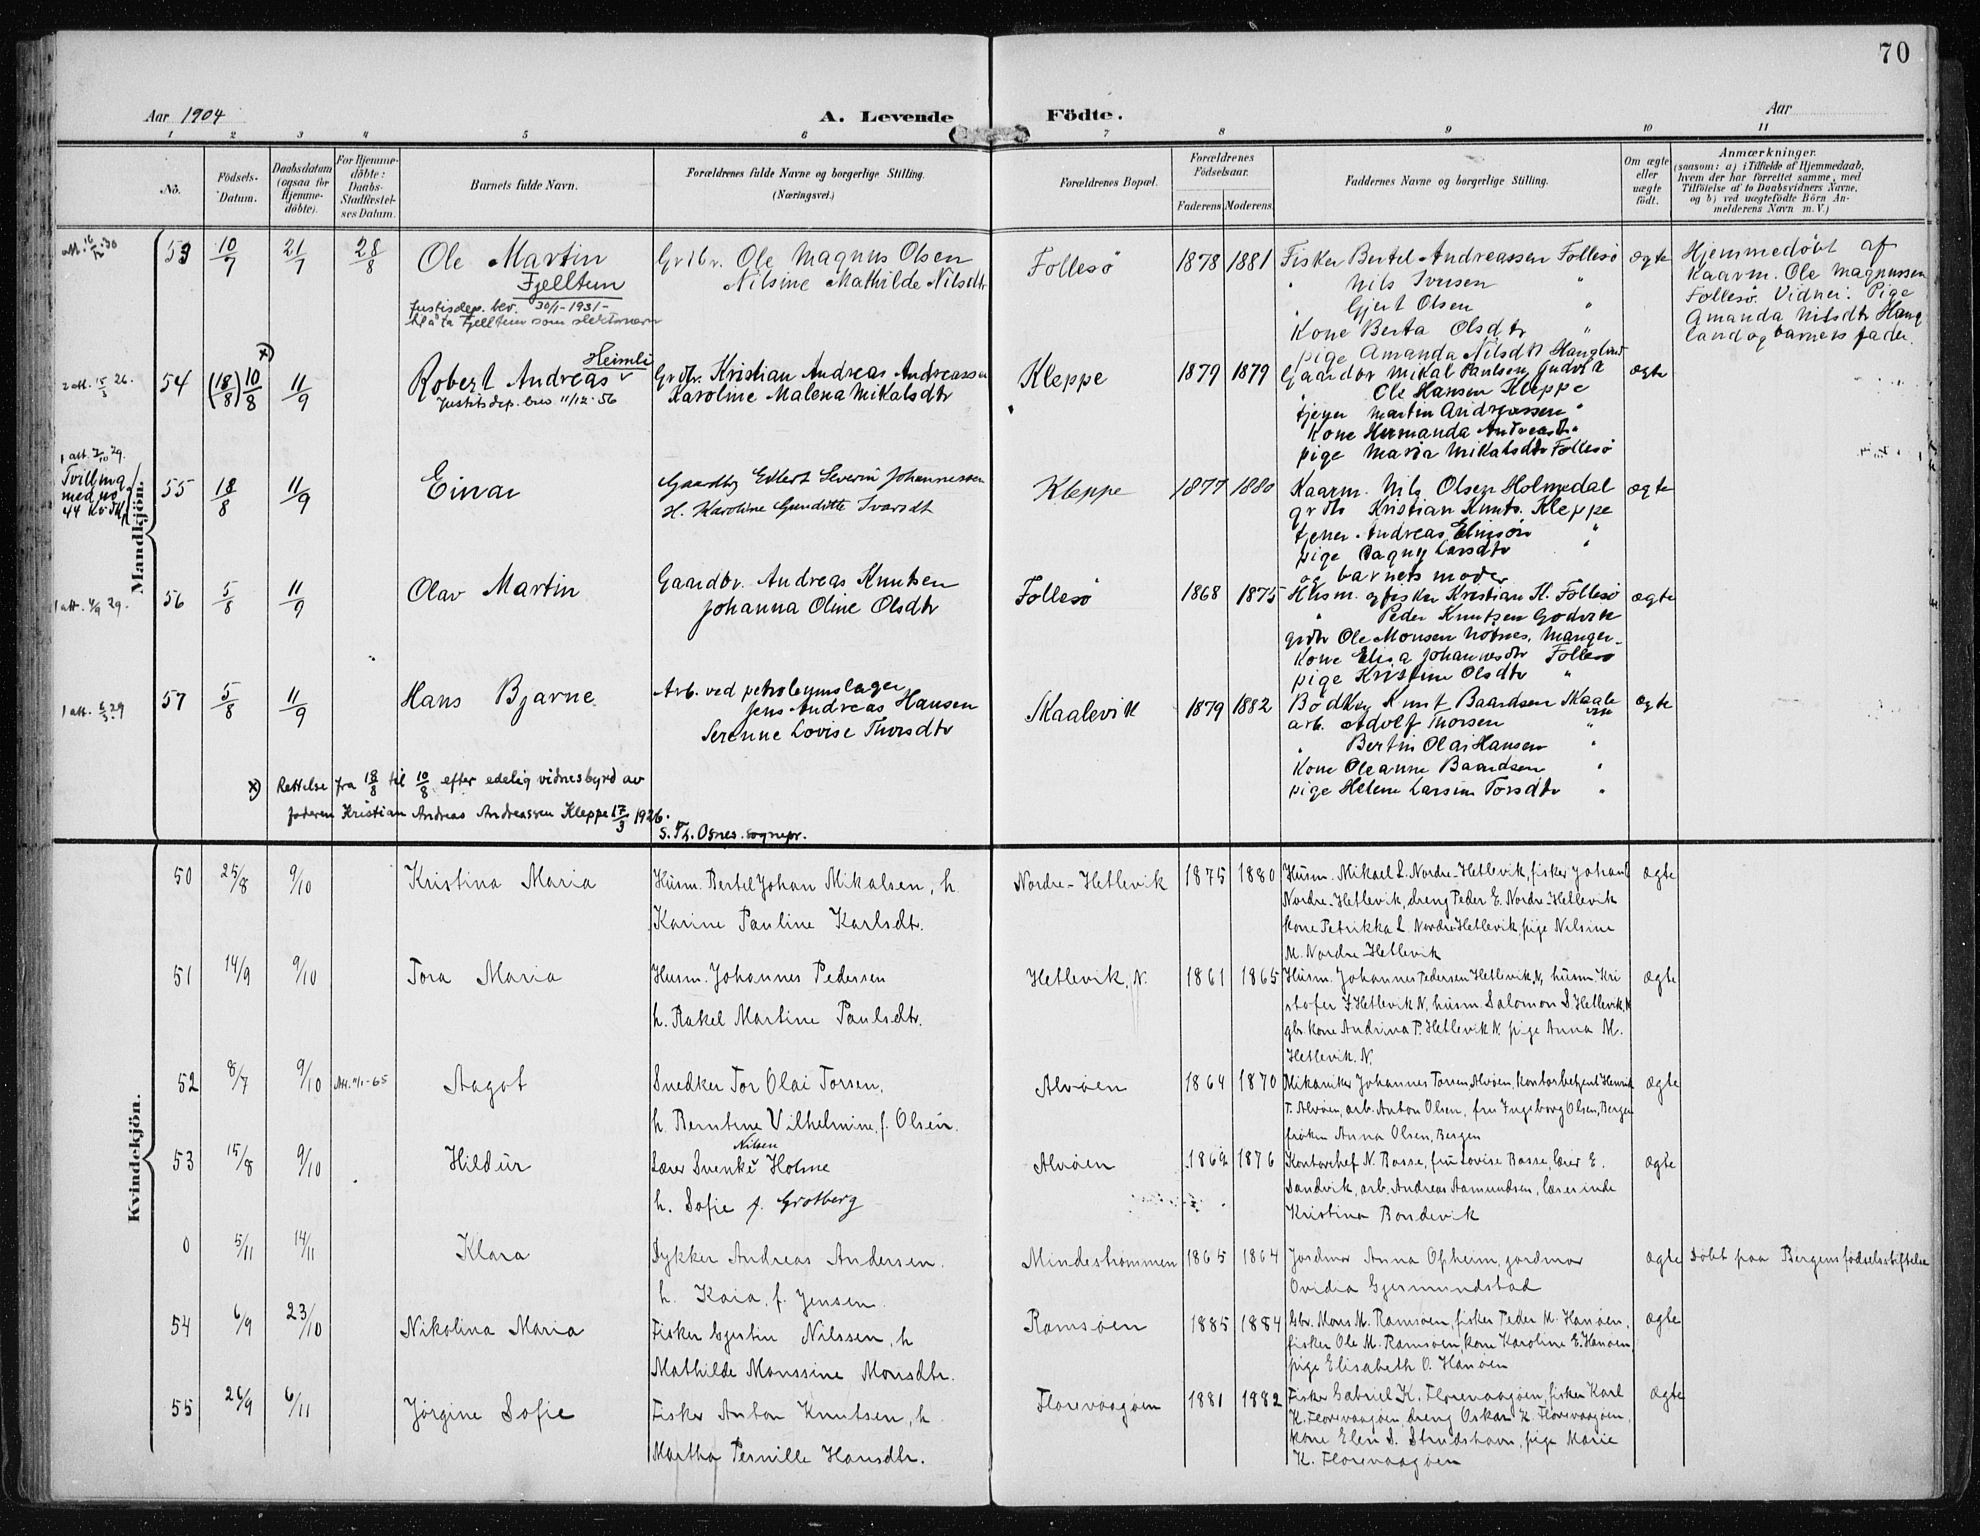 70
Aar 1904
A. Levende Födte.
Aar
1 2 3 4 5 6 7 8 9 10 11
No.
Födsels-Datum.
Daabsdatum (ogsaa for Hjemme-döbte).
For Hjemme-döbte: Daabs-Stadfæstel-ses Datum.
Barnets fulde Navn.
Forældrenes fulde Navne og borgerlige Stilling. (Næringsvei.)
Forældrenes Bopæl.
Forældrenes Födselsaar.
Faderens Moderens.
Faddernes Navne og borgerlige Stilling.
Om ægte eller uægte födt.
Anmærkninger.
(saasom: a) i Tilfælde af Hjemmedaab, hvem der har forrettet samme, med Tilföielse af to Daabsvidners Navne, og b) ved uægtefödte Börn An-melderens Navn m. V.)
Mandkjön.
53 10/7 21/7 28/8 Ole Martin Fjelltun
Justisdep. bev. 30/1-1931-
til å ta Fjelltun som slektsnavn
Grdbr. Ole Magnus Olsen
Nilsine Mathilde Nilsdtr
Follesö 1878 1881
Fisker Bertel Andreassen Follesö
" Nils Iversen "
" Gjert Olsen "
Kone Berta Olsdtr "
pige Amanda Nilsdtr Hangland
ægte
Hjemmedöbt af
Kaarm. Ole Magnussen
Follesö. Vidner: Pige
Amanda Nilsdtr Hang
land og barnets fader.
2 att. 15/3 26.
54 (18/8) 10/8 x) 11/9 Robert Andreas Heimli
Justisdep. brev 11/12-56
Grdbr. Kristian Andreas Andreassen
Karoline Malena Mikalsdtr
Kleppe 1879 1879
Gaardbr Mikal Paulsen Gudvik
" Ole Hansen Kleppe
tjener Martin Andreassen "
Kone Hermanda Andreasdtr "
pige Maria Mikalsdtr Follesö
ægte
Tvilling
med no
44 Kvdkj
55 18/8 11/9 Einar
Gaardbr Edlert Severin Johannessen
H. Karoline Gunditte Ivarsdt
Kleppe 1877 1880
Kaarm. Nils Olsen Holmedal
grdbr Kristian Knuts. Kleppe
tjener Andreas Elinsön "
pige Dagny Larsdtr "
og barnets moder
ægte
56 5/8 11/9 Olav Martin
Gaardbr. Andreas Knutsen
Johanna Oline Olsdtr
Follesö 1868 1875
Husm. og fisker Kristian K. Follesö
" Peder Knutsen Godvik
grdbr Ole Monsen Nötnes, Manger
Kone Elisa Johannesdtr Follesö
pige Kristine Olsdtr "
ægte
57 5/8 11/9 Hans Bjarne
Arb. ved petroleumslager
Jens Andreas Hansen
Serenne Lovise Thorsdtr
Skaalevik 1879 1882
Bödker Knut Baardsen Skaalevik
arb. Adolf Thorsen "
" Bertin Olai Hansen "
Kone Oleanne Baardsen "
pige Helene Larsine Torsdtr "
ægte
x) Rettelse fra 18/8 til 10/8 efter edelig vidnesbyrd av
faderen Kristian Andreas Andreassen Kleppe 17/3 1926.
S. Th. Osnes. sognepr.
Kvindekjön.
50 25/8 9/10 Kristina Maria
Husm. Bertel Johan Mikalsen, h.
Karine Pauline Karlsdtr.
Nordre-Hetlevik 1875 1880
Husm. Mikael L. Nordre-Hetlevik, fisker Johan L
Nordre-Hetlevik, dreng Peder E. Nordre-Hetlevik
kone Petrikka L. Nordre-Hetlevik, pige Nilsine
M. Nordre-Hetlevik
ægte
51 14/9 9/10 Tora Maria
Husm. Johannes Pedersen
h. Rakel Martine Paulsdtr.
Hetlevik, N. 1861 1865
Husm. Johannes Pedersen Hetlevik, N, husm. Kri
stofer J. Hetlevik N, husm. Salomon S Hetlevik N
gbr. kone Andrina P. Hetlevik N. pige Anna M.
Hetlevik. N.
ægte
52 8/7 9/10 Att. 11/1-65 Aagot
Snedker Tor Olai Torsen,
h. Berntine Vilhelmine, f. Olsen.
Alvøen 1864 1870
Mikaniker Johannes Torsen Alvøen, kontorbetjent Henrik
T. Alvøen, arb. Anton Olsen, fru Ingeborg Olsen, Bergen
frøken Anna Olsen, Bergen
ægte
53 15/8 9/10 Hildur
Lærer Svenke Nilsen Holme
h. Sofie f. Grotberg
Alvøen 1862 1876
Kontorchef N. Basse, fru Lovise Basse, lærer E.
Sandvik, arb. Andreas Aamundsen, lærerinde
Kristina Bondevik
ægte
0 5/11 14/11 Klara
Dykker Andreas Andersen.
h. Kaia, f. Jensen.
Mindestrømmen 1865 1864
Jordmor Anna Opheim, jordmor
Ovidia Gjermundstad
ægte
Døbt paa Bergens fødselsstiftelse
54 6/9 23/10 Nikolina Maria
Fisker Gjertin Nilssen, h
Mathilde Monssine Monsdtr.
Ramsøen 1885 1884
Gbr. Mons M. Ramsøen, fisker Peder M. Hanøen,
fisker Ole M. Ramsøen, kone Karoline E. Hanøen,
pige Elisabeth O. Hanøen
ægte
55 26/9 6/11 Jörgine Sofie
Fisker Anton Knutsen, h.
Martha Pernille Hansdtr.
Florevaagøen 1881 1882
Fisker Gabriel K. Florevaagøen, fisker Karl
K. Florevaagøen, dreng Oskar K. Florevaagøen,
kone Elen S. Strudshavn, pige Marie
K. Florevaagøen
ægte